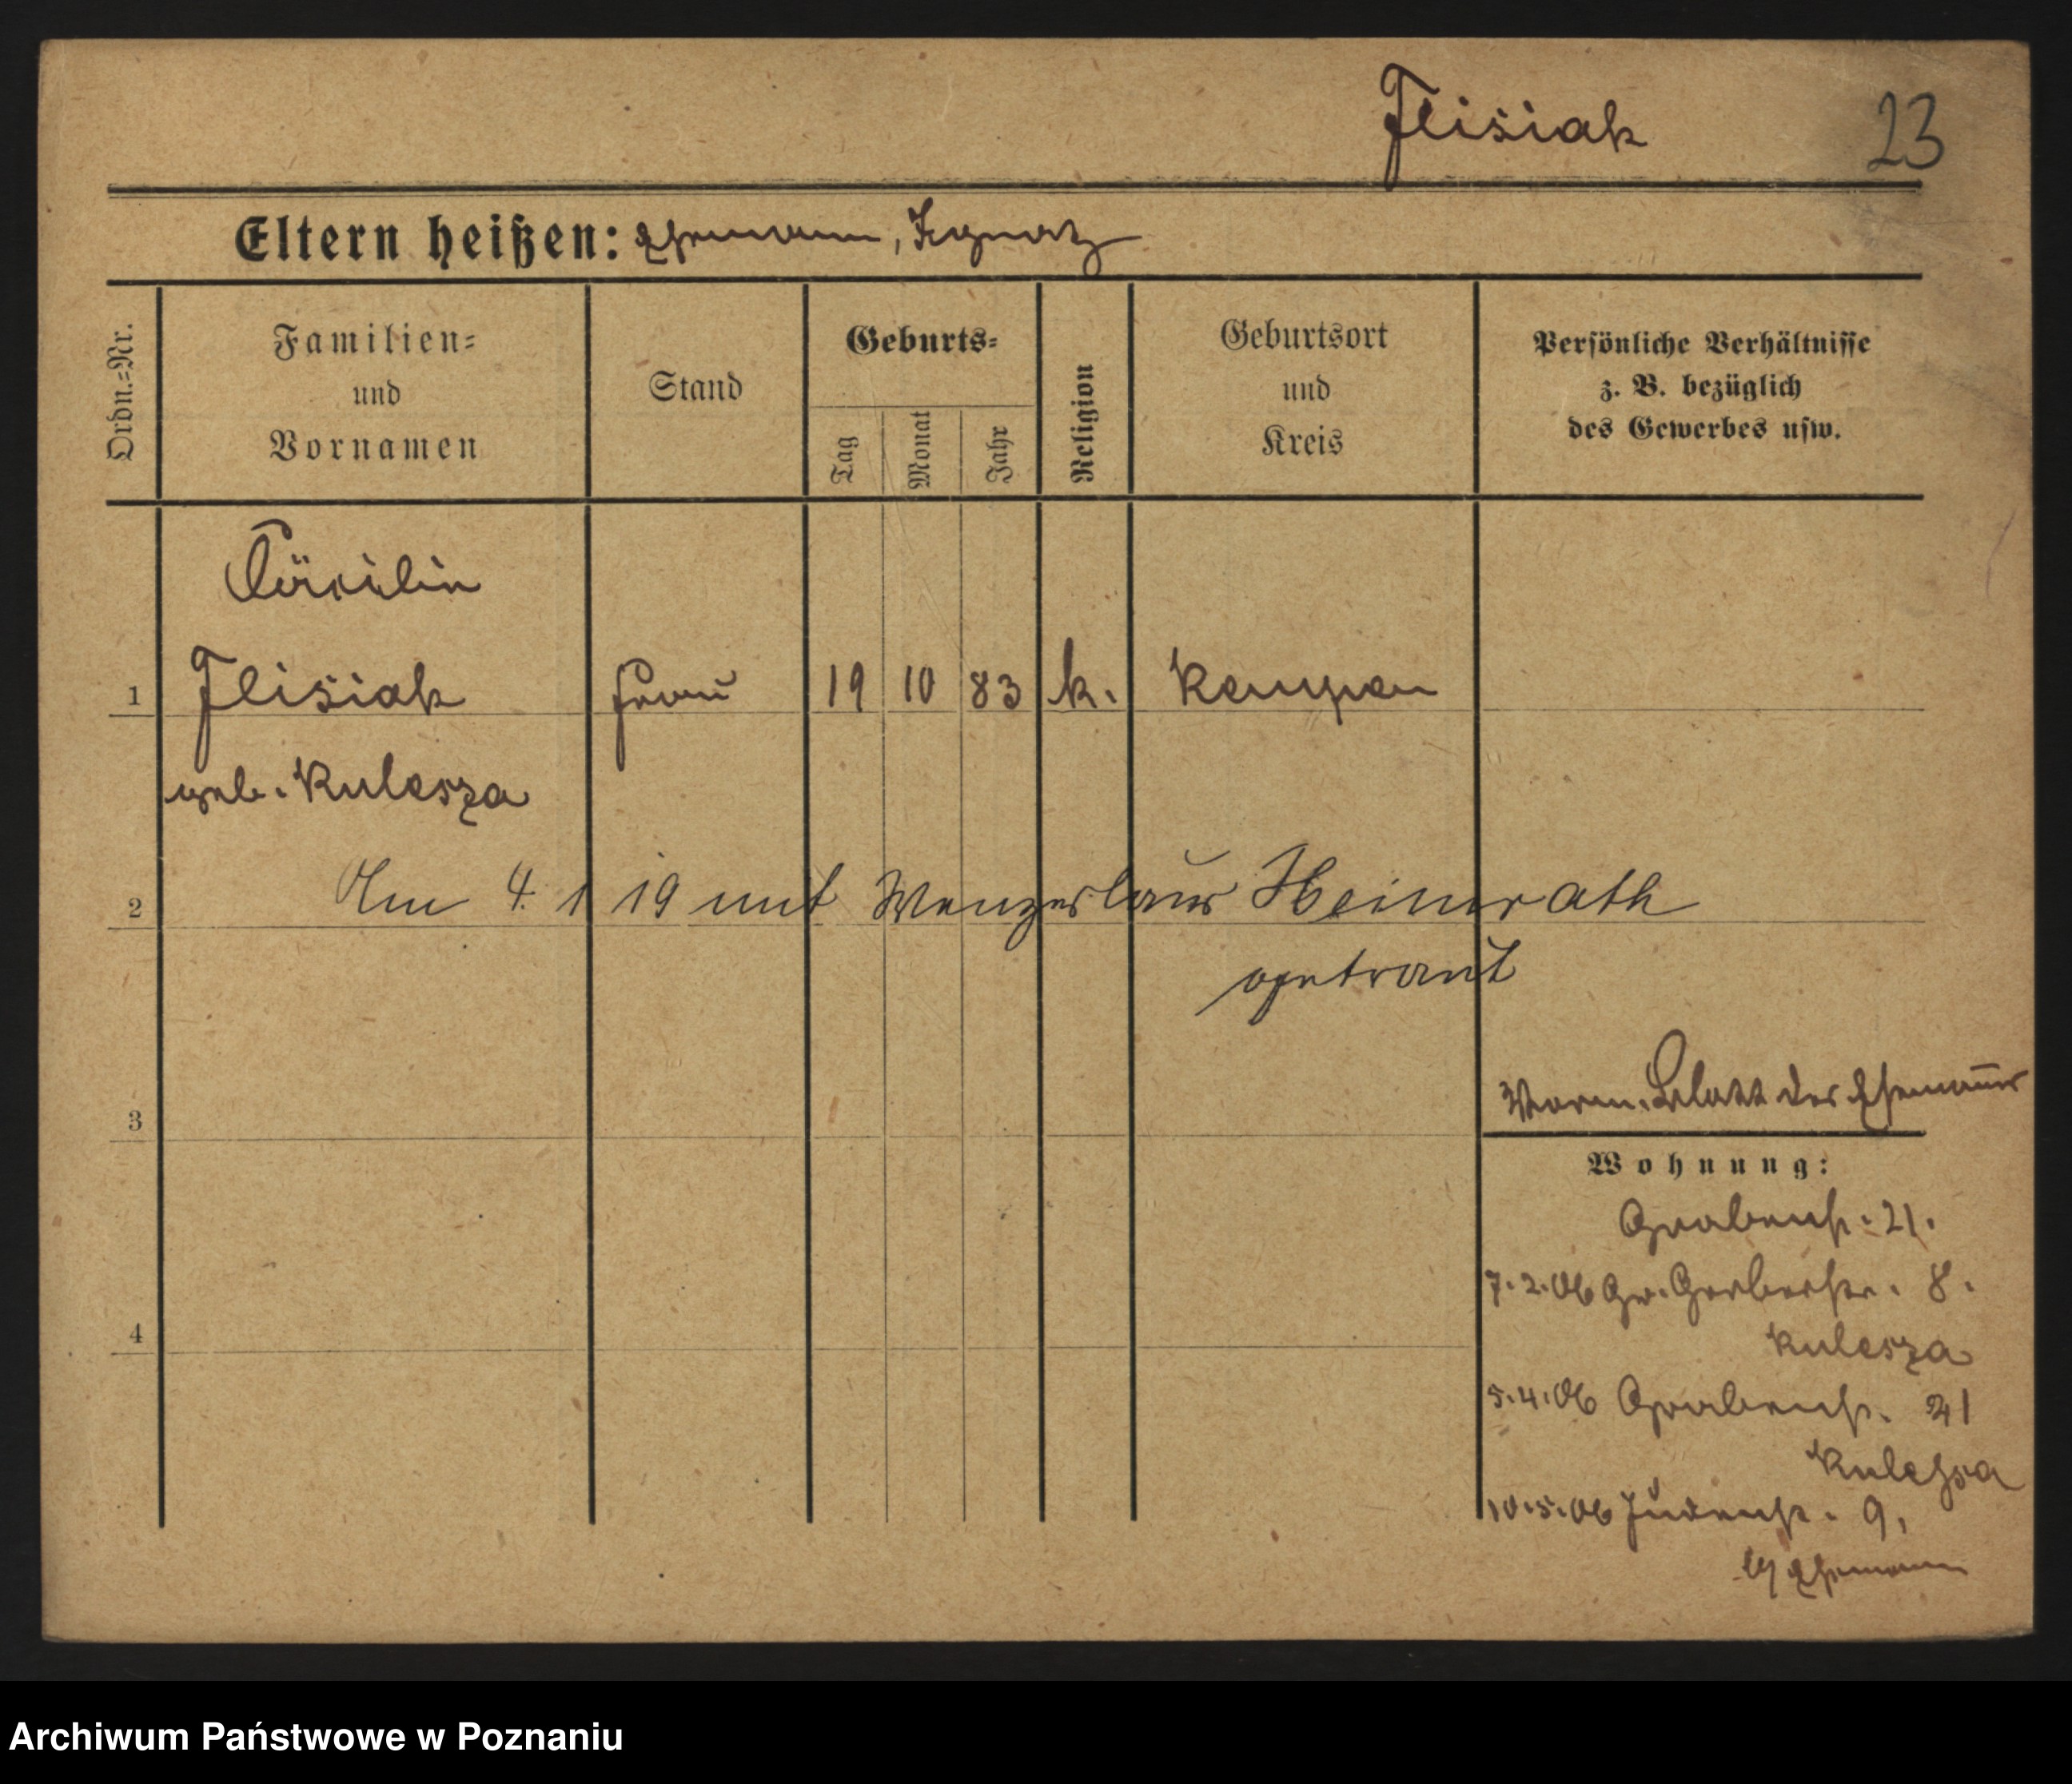 Flisiak 23
Eltern heißen: Ehemann, Ignatz
Ordn.=Nr.
Familien=
und
Vornamen
Stand
Geburts=
Tag
Monat
Jahr
Religion
Geburtsort
und
Kreis
Persönliche Verhältnisse
z. B. bezüglich
des Gewerbes usw.
Cäcilia
1 Flisiak Frau 19 10 83 k. Kempen
geb. Kulesza
2 Am 4. 1 19 mit Wenzeslaus Heimrath
getraut
3 Blatt des Ehemanns
Wohnung:
Grabenstr. 21.
7.2.06 Gr. Gerberstr. 8.
Kulesza
4
5.4.06 Grabenstr. 21
Kulesza
10.5.06 Judenstr. 9.
Ehemann
Archiwum Państwowe w Poznaniu